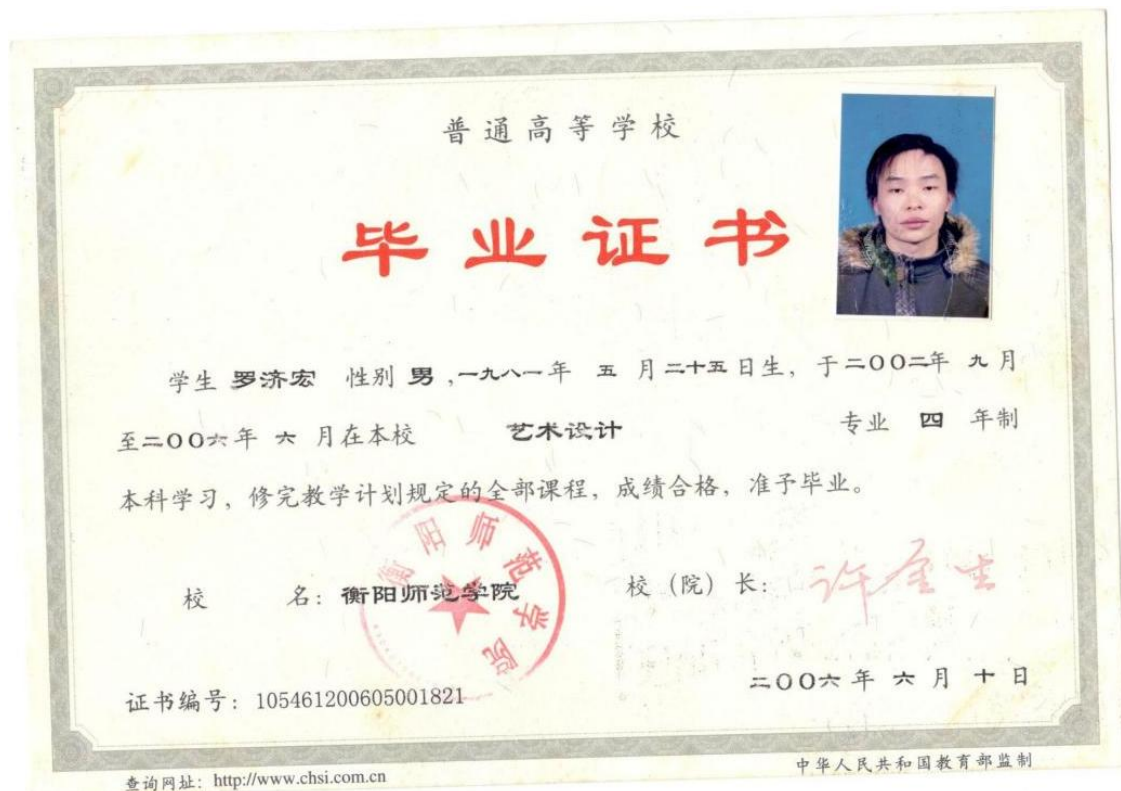 普通高等学校
毕业证书
学生 罗济宏 性别 男 ,一九八一年 五 月二十五日生，于二００二年 九月
至二００六年 六 月在本校 艺术设计 专业 四 年制
本科学习，修完教学计划规定的全部课程，成绩合格，准予毕业。
衡阳师范学院
校 名：衡阳师范学院 校（院）长：
证书编号：105461200605001821 二００六年 六 月 十 日
查询网址：http://www.chsi.com.cn 中华人民共和国教育部监制